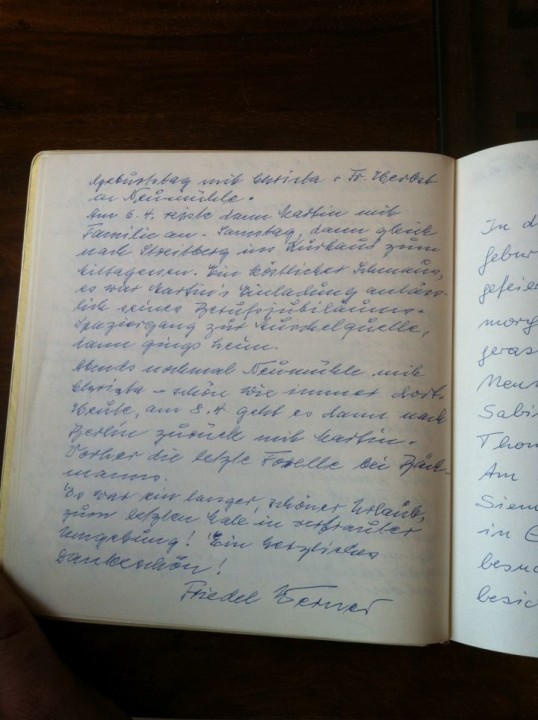 Geburtstag mit Christa + Fr. Herbst
in Neumühle.
Am 6. 4. reiste dann Martin mit
Familie an. Samstag, dann gleich
nach Streitberg ins Kurhaus zum
Mittagessen. Ein köstlicher Schmaus,
es war Martin's Einladung anläss-
lich seines Berufsjubiläums.
Spaziergang zur Muschelquelle,
dann gings heim.
Abends nochmal Neumühle mit
Christa – schön wie immer dort.
Heute, am 8.4 geht es dann nach
Berlin zurück mit Martin.
Vorher die letzte Forelle bei Bach-
manns.
Es war ein langer, schöner Urlaub,
zum letzten Male in vertrauter
Umgebung! Ein herzliches
Dankeschön!
Friedel Werner
In d
gebur
gefeier
morg
geras
Neu
Sabi
Thom
Am
Siem
in
besu
besic